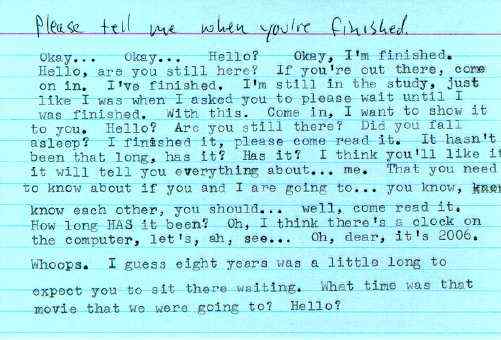 Please tell me when you're finished.
Okay... Okay... Hello? Okay, I'm finished.
Hello, are you still here? If you're out there, come
on in. I've finished. I'm still in the study, just
like I was when I asked you to please wait until I
was finished. With this. Come in, I want to show it
to you. Hello? Are you still there? Did you fall
asleep? I finished it, please come read it. It hasn't
been that long, has it? Has it? I think you'll like it
it will tell you everything about... me. That you need
to know about if you and I are going to... you know,
know each other, you should... well, come read it.
How long HAS it been? Oh, I think there's a clock on
the computer, let's, ah, see... Oh, dear, it's 2006.
Whoops. I guess eight years was a little long to
expect you to sit there waiting. What time was that
movie that we were going to? Hello?